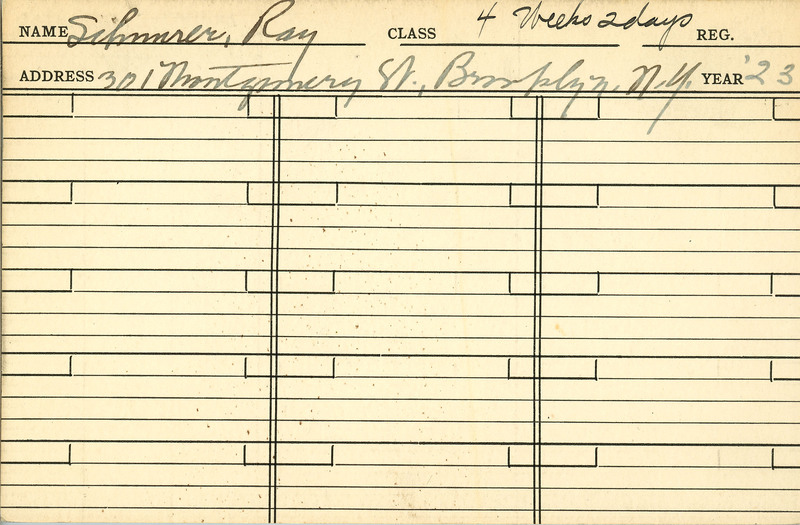 NAME Silmirer, Ray CLASS 4 Weeks 2 days REG.
ADDRESS 301 Montgomery St., Brooklyn, N.Y. YEAR '23